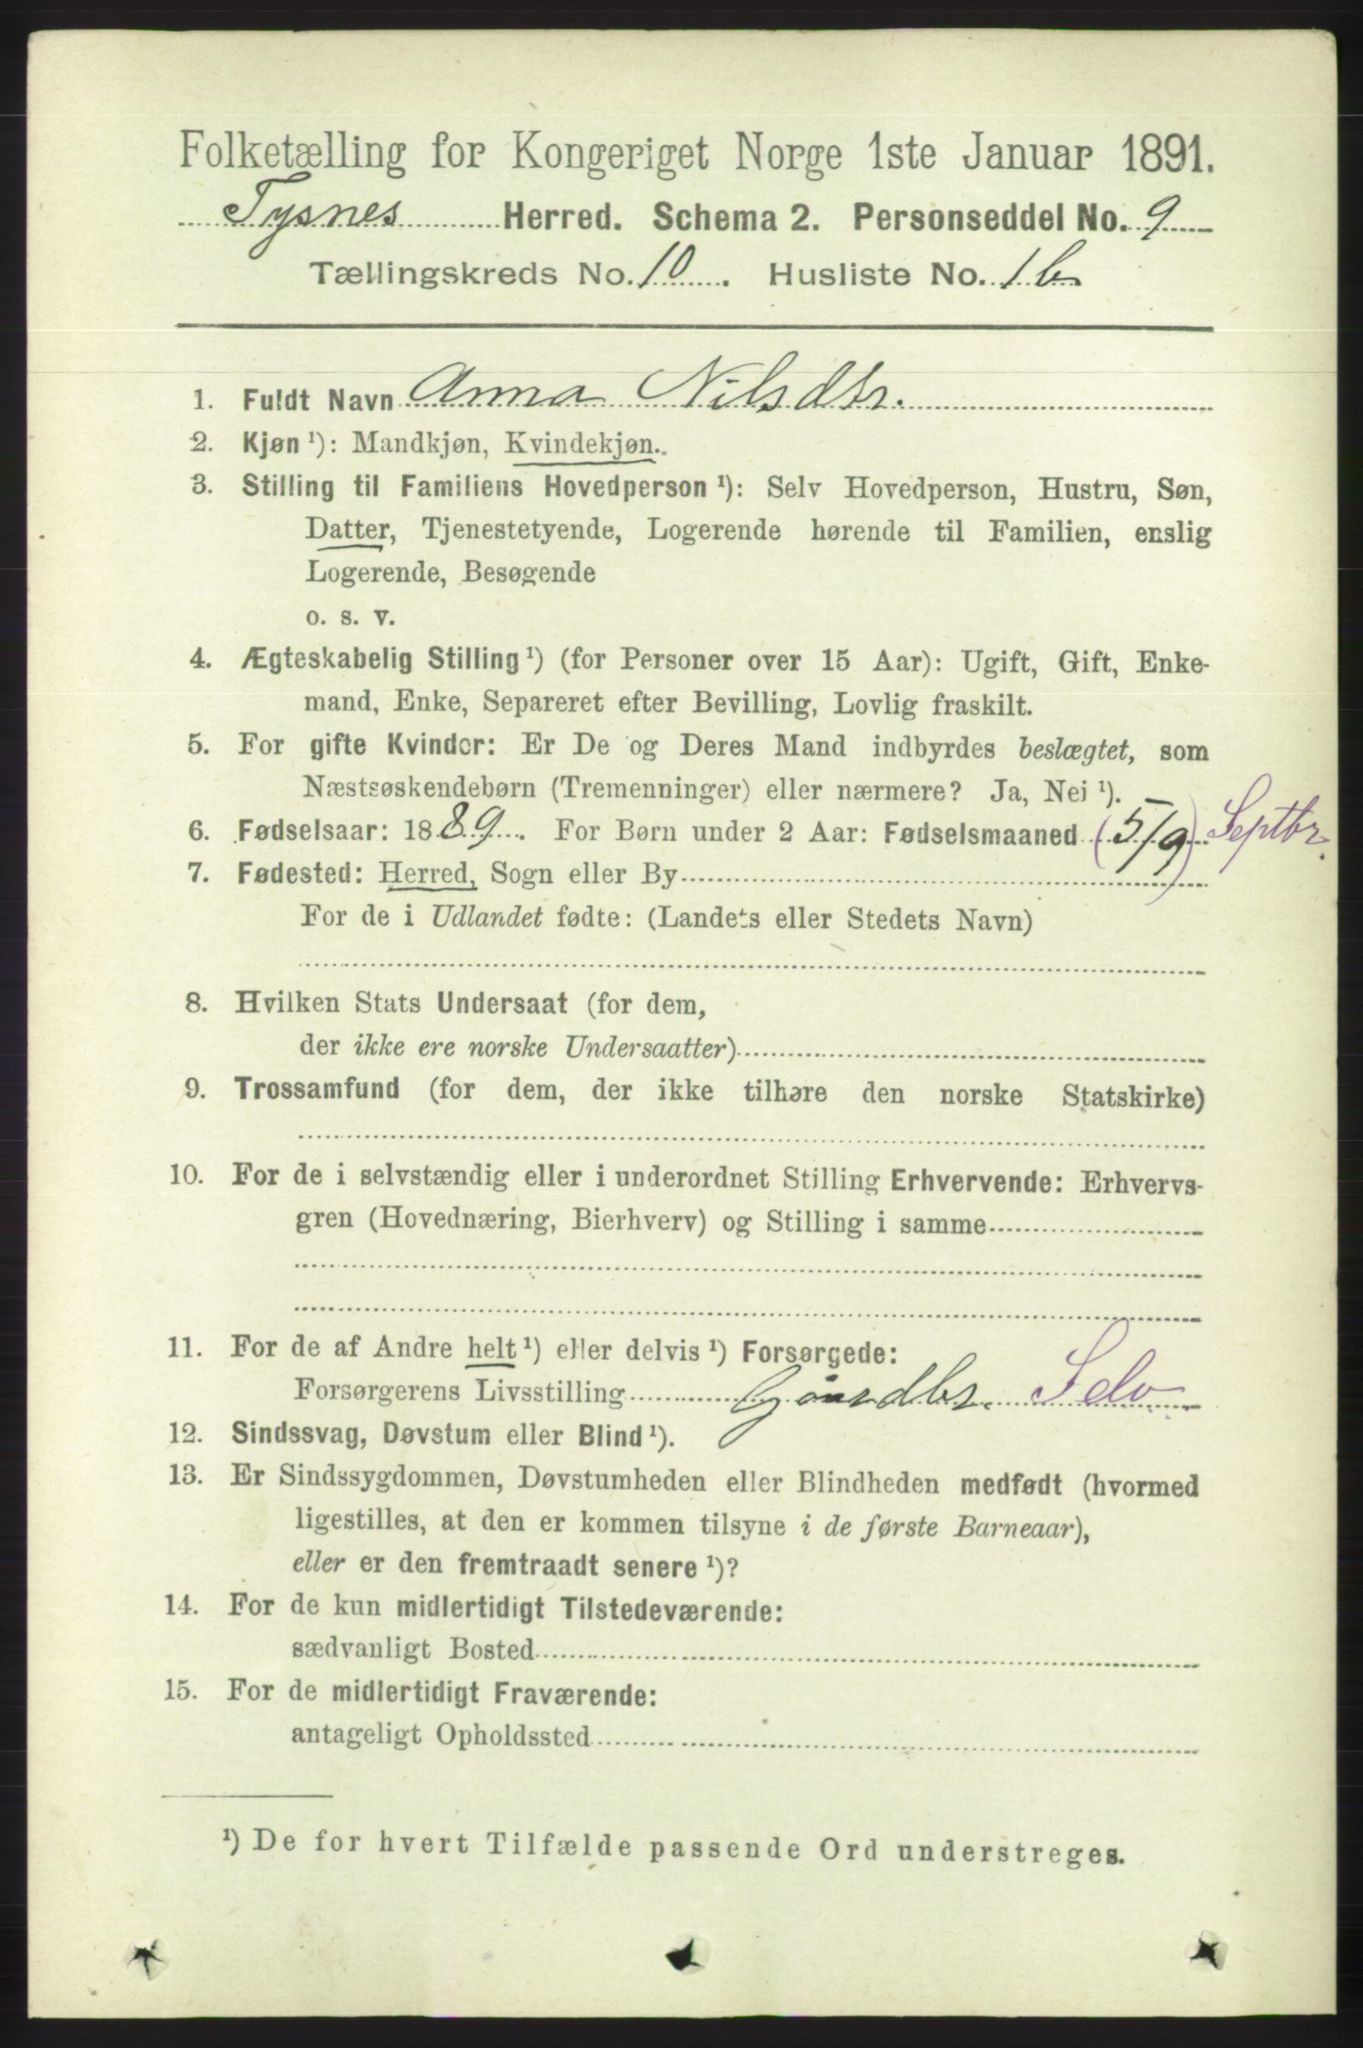 Folketælling for Kongeriget Norge 1ste Januar 1891.
Tysnes Herred. Schema 2. Personseddel No. 9
Tællingskreds No. 10. Husliste No. 1b
1. Fuldt Navn Anna Nilsdtr.
2. Kjøn ¹): Mandkjøn, Kvindekjøn.
3. Stilling til Familiens Hovedperson ¹): Selv Hovedperson, Hustru, Søn,
Datter, Tjenestetyende, Logerende hørende til Familien, enslig
Logerende, Besøgende
o. s. v.
4. Ægteskabelig Stilling ¹) (for Personer over 15 Aar): Ugift, Gift, Enke-
mand, Enke, Separeret efter Bevilling, Lovlig fraskilt.
5. For gifte Kvinder: Er De og Deres Mand indbyrdes beslægtet, som
Næstsøskendebørn (Tremenninger) eller nærmere? Ja, Nei ¹).
6. Fødselsaar: 1889. For Børn under 2 Aar: Fødselsmaaned (5/9) Septbr.
7. Fødested: Herred, Sogn eller By
For de i Udlandet fødte: (Landets eller Stedets Navn)
8. Hvilken Stats Undersaat (for dem,
der ikke ere norske Undersaatter)
9. Trossamfund (for dem, der ikke tilhøre den norske Statskirke)
10. For de i selvstændig eller i underordnet Stilling Erhvervende: Erhvervs-
gren (Hovednæring, Bierhverv) og Stilling i samme
11. For de af Andre helt ¹) eller delvis ¹) Forsørgede:
Forsørgerens Livsstilling Gaardbr. Selv
12. Sindssvag, Døvstum eller Blind ¹).
13. Er Sindssygdommen, Døvstumheden eller Blindheden medfødt (hvormed
ligestilles, at den er kommen tilsyne i de første Barneaar),
eller er den fremtraadt senere ¹)?
14. For de kun midlertidigt Tilstedeværende:
sædvanligt Bosted
15. For de midlertidigt Fraværende:
antageligt Opholdssted
¹) De for hvert Tilfælde passende Ord understreges.